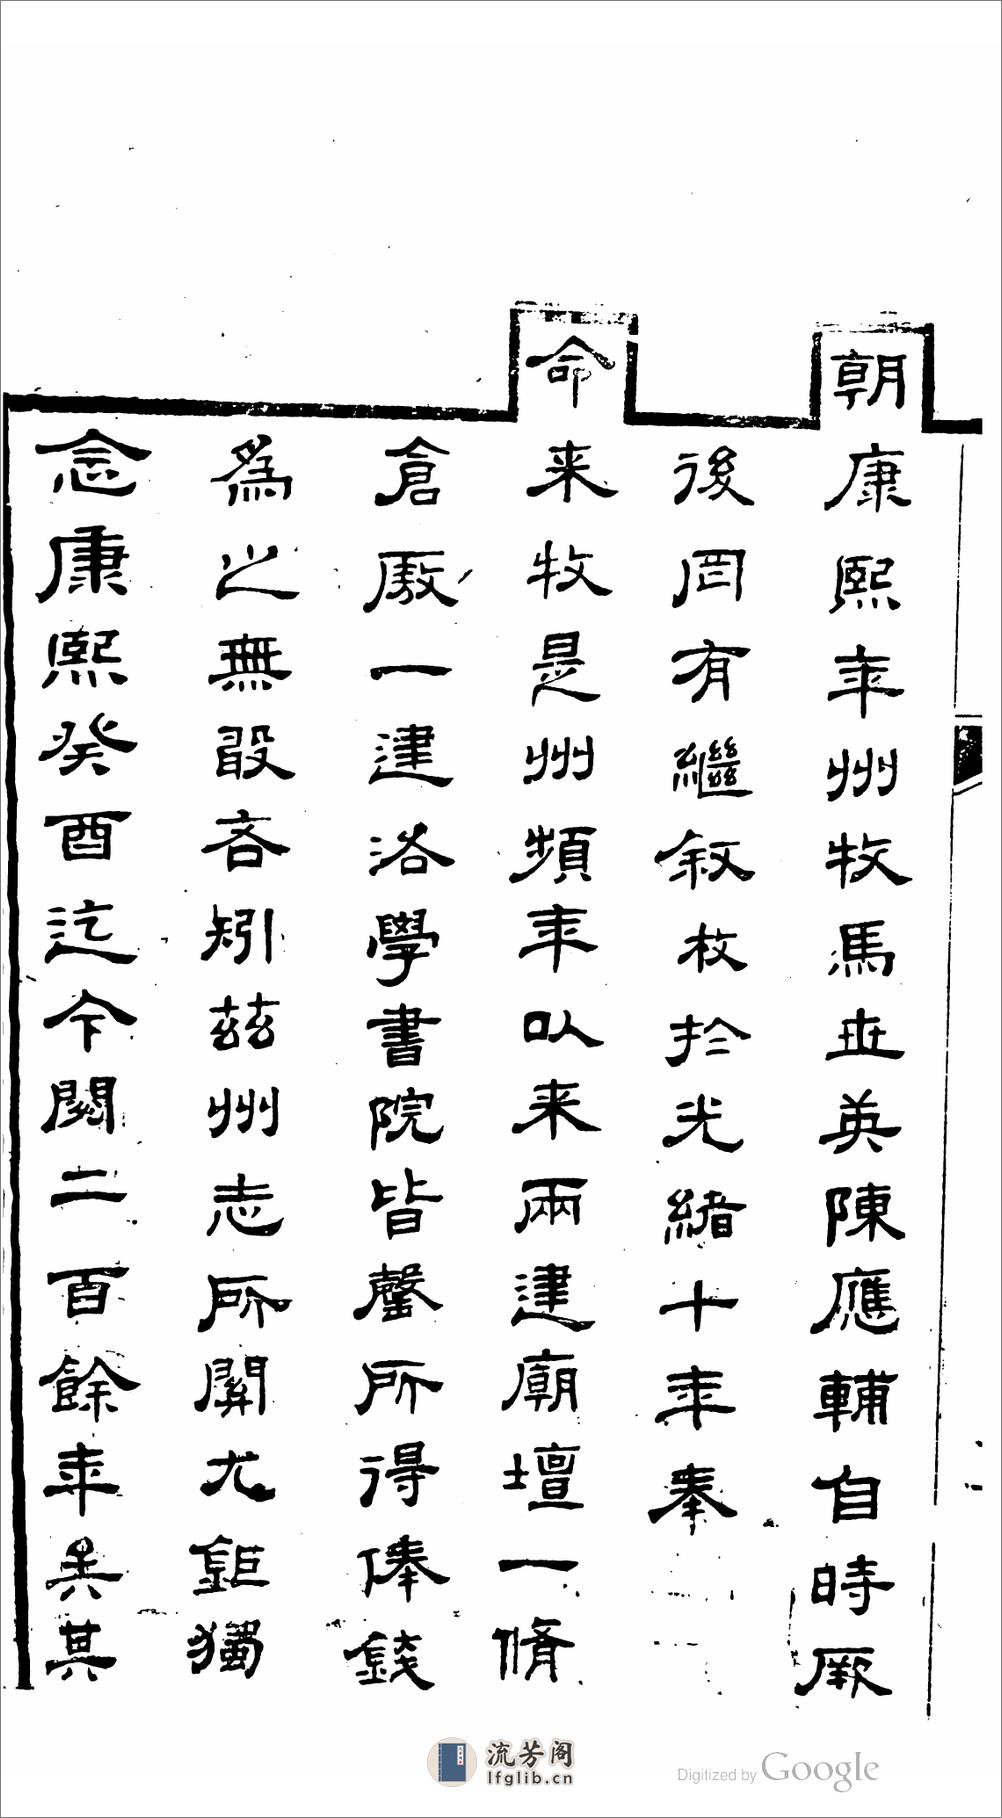 朝康熙年州牧馬世英陳應輔自時厥
後罔有繼敘枚於光緒十年奉
命来牧是州頻年以来兩建廟壇一脩
倉廒一建洛學書院皆罄所得俸錢
為之無敢吝矧茲州志所關尤鉅獨
念康熙癸酉迄今閱二百餘年矣其
流芳阁
lfglib.cn
Digitized by Google